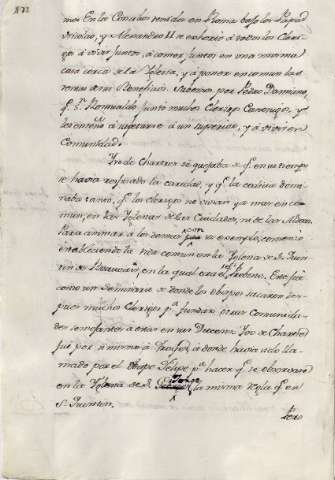 mos En los Concilios tenidos en Roma baxo los Papas
Nicolao, y Alexandro II se exhorto à todos los Cleri-
gos à vivir juntos, à comer juntos en una misma
casa cerca de la Yglesia, y à poner en comun las
rentas de sus Beneficios. Sabemos por Pedro Damiano,
q.e S.n Romualdo juntò muchos Clerigos Canonigos, y
les enseñò à sugetarse à un Superior, y à vivir en
Comunidad.
Yvo de Chartres se quejaba de q.e en su tiempo
se havia resfriado la caridad, y q.e la codicia domi-
naba tanto, q.e los clerigos no vivian ya mas en co-
mun, en las Yglesias de las Ciudades, ni de las Aldeas.
Para animar à los demas con su exemplo, comenzò
estableciendo la vida comun en la Yglesia de S. Quin-
tin de Beauvais, en la qual era el Preboste. Este fue
como un Seminario de donde los obispos sacaron des-
pues muchos Clerigos p.a fundar en sus Comunida-
des semejantes a estas en sus Diocesis. Yvo de Chartres
fuè por si mismo à à donde havia sido lla-
mado por el Obispo Felipe p.a hacer q.e se observase
en la Yglesia de S. la misma Regla q.e en
S.n Quintin.